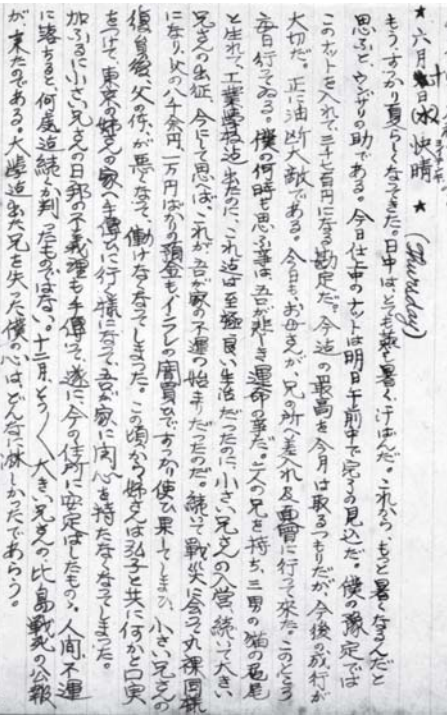 ★ 六月 日(水) 快晴 ★ (Thursday)
もう、すっかり夏らしくなってきた。日中はとても蒸し暑く、汗ばんだ。これから、もっと暑くなるんだと
思ふと、ウンザリの助である。今日仕上中のナットは明日午前中で完了の見込だ。僕の豫定では
このナットを入れて、三千七百円になる勘定だ。今迄の最高を今月は取るつもりだが、今後の成行が
大切だ。正に油断大敵である。今日も、お母さんが、兄の所へ差入れ及面會に行って來た。このところ
毎日行ってゐる。僕の何時も思ふ事は、吾が悲しき運命の事だ。二人の兄を持ち、三男の猫の尾尻
と生れて、工業學校迄出たのに、これ迄は至極良い生活だったのに、小さい兄さんの入営、続いて大きい
兄さんの出征、今にして思へば、これが吾が家の不運の始まりだったのだ。続いて戰災に会って丸裸同様
になり、父の八千余円、一万円ばかりの預金も、インフレの開買ひですっかり使ひ果してしまひ、小さい兄さんの
復員後、父の体が悪くなって、働けなくなってしまった。この頃から姉さんは弘子と共に何かと口実
をつけて、東京の姉さんの家へ手傳ひに行く様になって、吾が家に関心を持たなくなってしまった。
加ふるに小さい兄さんの日邦の不義理も手傳って、遂に、今の住所に安定はしたものゝ、人間、不運
に落ちると、何處迄続くか判ったものではない。十二月、とう〱大きい兄さんの比島戰死の公報
が來たのである。大學迄出た兄を失った僕の心は、どんなに淋しかったであらう。